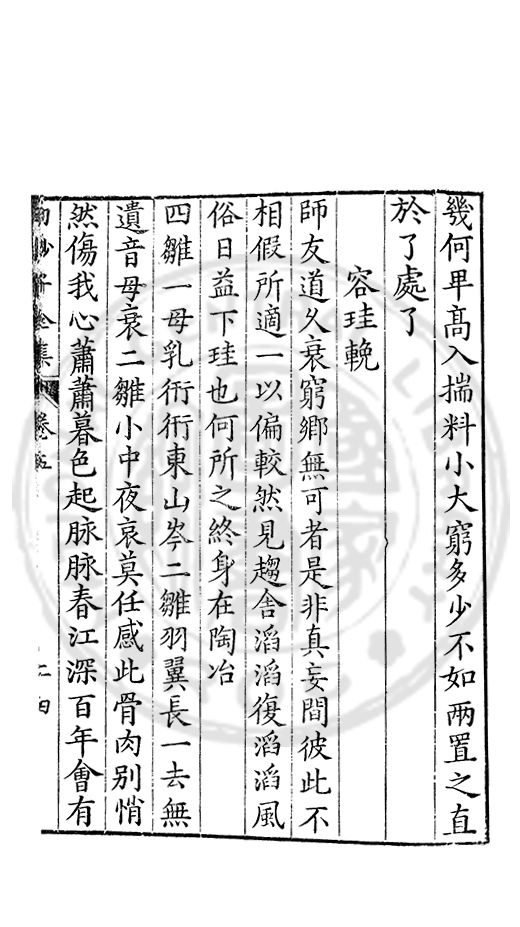 幾何卑髙入揣料小大窮多少不如兩置之直
於了處了
容珪輓
師友道久衰窮鄉無可者是非真妄間彼此不
相假所適一以偏較然見趨舍滔滔復滔滔風
俗日益下珪也何所之終身在陶冶
四雛一母乳衎衎東山岑二雛羽翼長一去無
遺音母哀二雛小中夜哀莫任感此骨肉别悄
然傷我心蕭蕭暮色起脉脉春江深百年㑹有
全集
卷五
二四